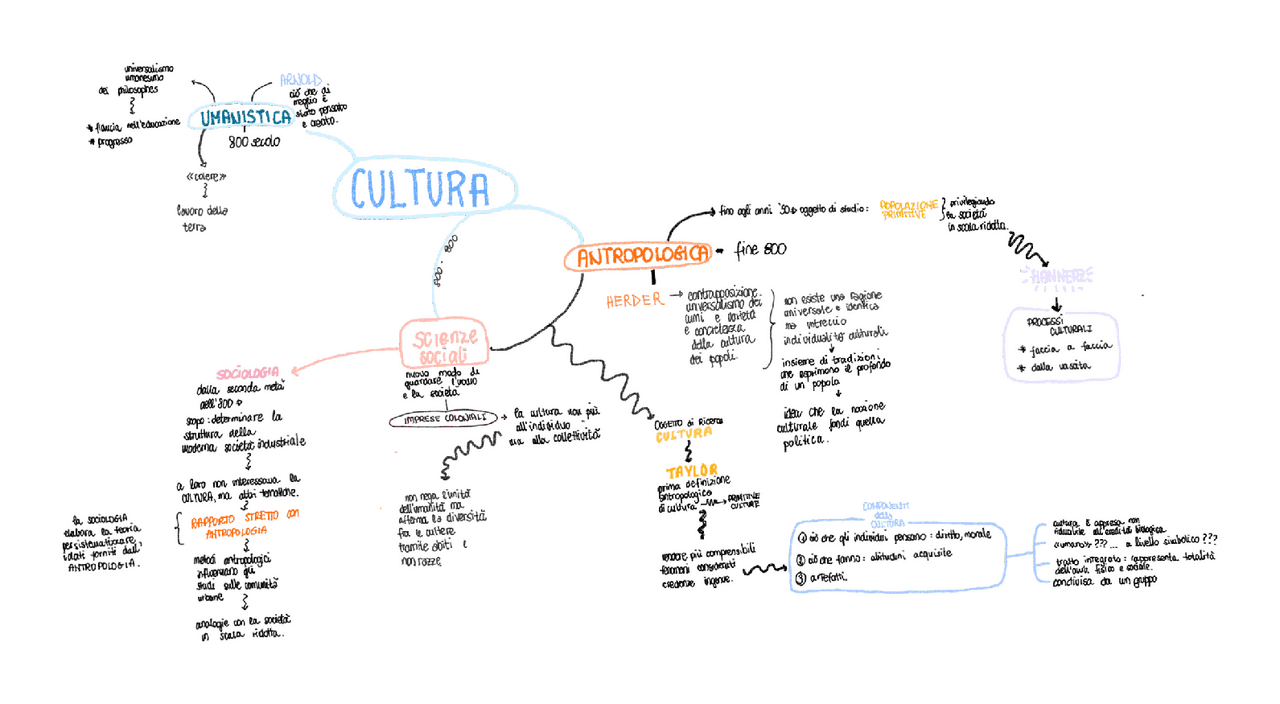 universalismo
umanesimo
dei philosophes
* fiducia nell'educazione
* progresso
ARNOLD
ciò che di
meglio è
stato pensato
e creato.
UMANISTICA
800 secolo
«colere»
lavoro della
terra
CULTURA
800 - 900
ANTROPOLOGICA
fine 800
fino agli anni '50 oggetto di studio:
POPOLAZIONE
PRIMITIVE
privilegiando
la società
in scala ridotta.
HANNERZ
PROCESSI
CULTURALI
* faccia a faccia
* dalla vastità
HERDER
contrapposizione
universalismo dei
lumi e varietà
e concretezza
della cultura
dei popoli.
non esiste una ragione
universale e identica
ma intreccio
individualità culturali
insieme di tradizioni
che esprimono il profondo
di un popolo
idea che la nazione
culturale fondi quella
politica.
scienze
sociali
nuovo modo di
guardare l'uomo
e la società
IMPRESE COLONIALI
la cultura non più
all'individuo
ma alla collettività
non nega l'unità
dell'umanità ma
afferma la diversità
fra le culture
tramite abiti e
non razze
SOCIOLOGIA
dalla seconda metà
dell'800
scopo: determinare la
struttura della
moderna società industriale
a loro non interessava la
CULTURA, ma altri tematiche.
RAPPORTO STRETTO con
ANTROPOLOGIA
la SOCIOLOGIA
elabora la teoria
per sistematizzare
i dati forniti dall'
ANTROPOLOGIA.
metodi antropologici
influenzano gli
studi sulle comunità
urbane
analogie con la società
in scala ridotta.
OGGETTO di Ricerca
CULTURA
TAYLOR
prima definizione
antropologico
di cultura
PRIMITIVE
CULTURE
rendere più comprensibili
fenomeni considerati
credenze ingenue.
COMPONENTI
della
CULTURA
① ciò che gli individui pensano: diritto, morale
② ciò che fanno: abitudini acquisite
③ artefatti.
cultura è appresa non
riducibile all'eredità biologica
«umano» ??? ... a livello simbolico ???
tratto integrato: rappresenta totalità
dell'amb. fisico e sociale.
condivisa da un gruppo